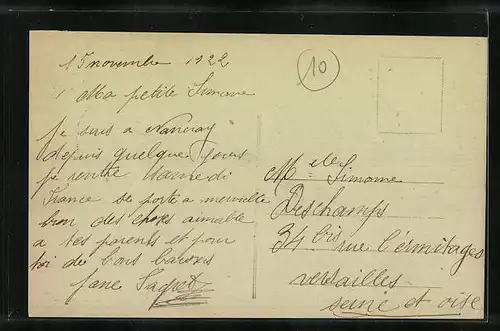 15 novembre 1922
Ma petite Simone
Je suis a Nançay
depuis quelque jours
je rentre samedi
France se porte a merveille
bien des choses aimable
a tes parents et pour
toi de bons baisers
Jane
10
Melle Simone
Deschamps
34 bis rue l'érmitages
versailles
seine et oise